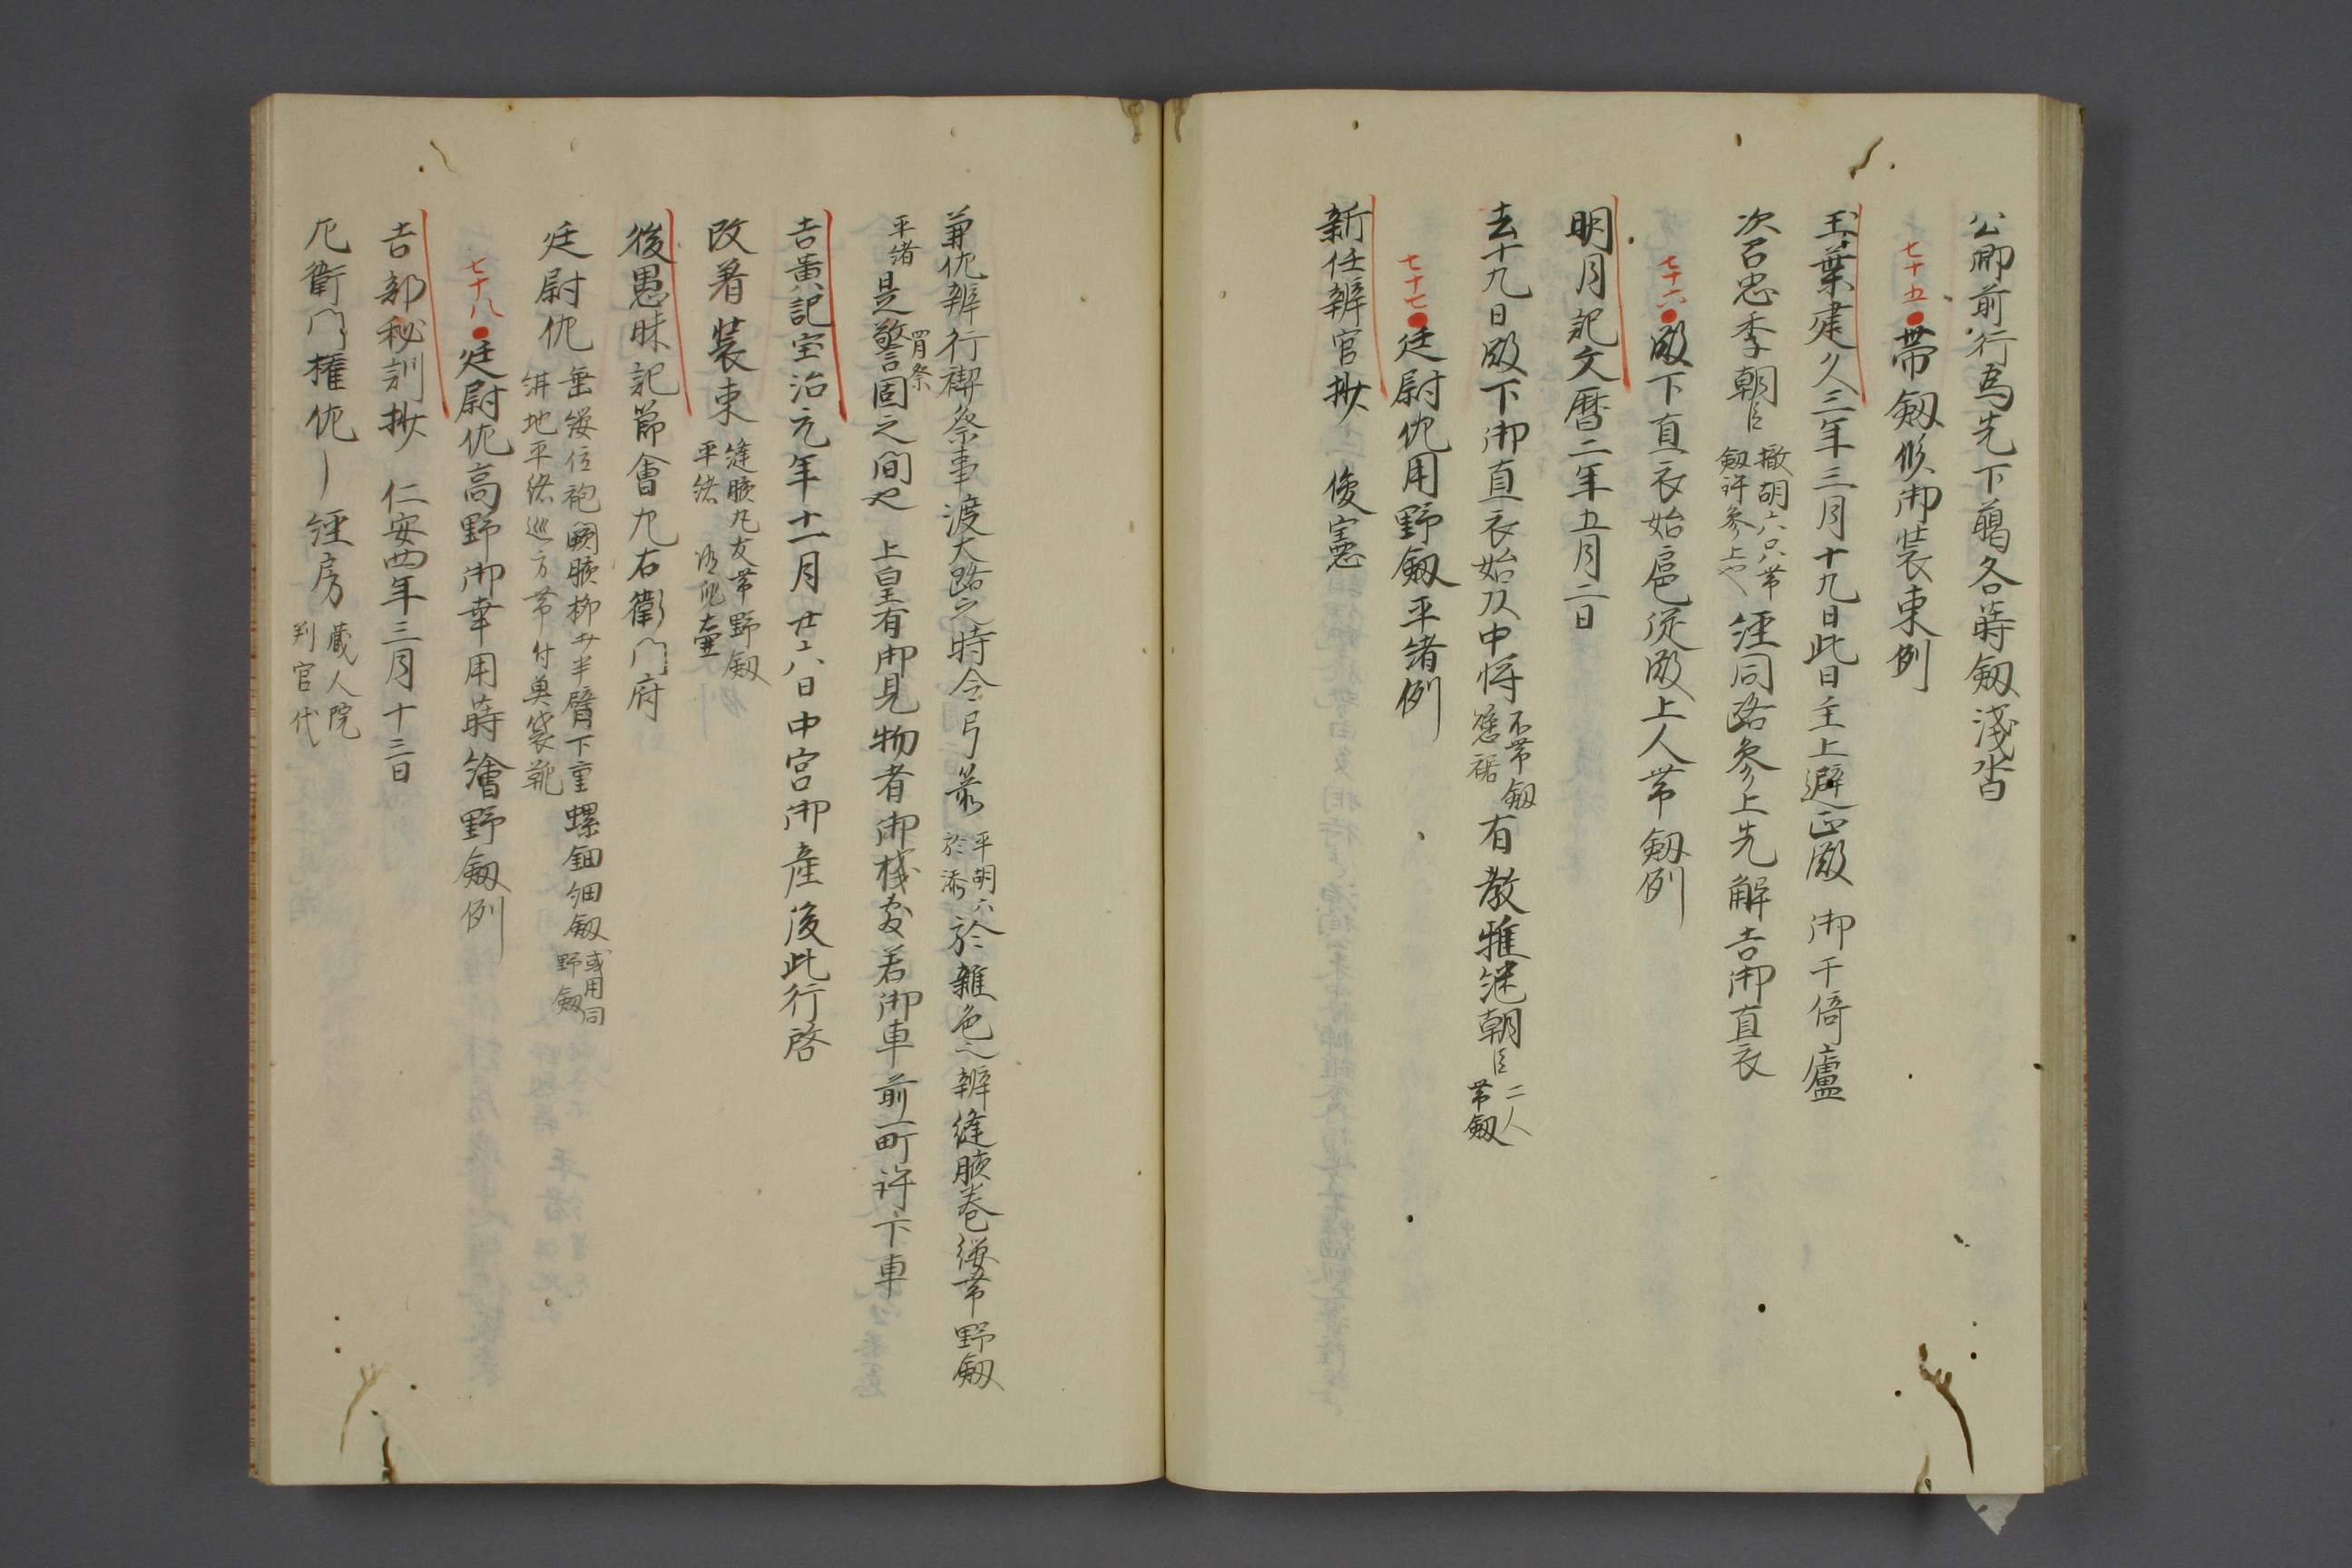 公卿前行為先下﨟各蒔釼淺沓
七十五●帯釼候御装束例
玉葉建久三年三月十九日此日主上避正殿 御于倚廬
次召忠季朝臣 撤胡六只帯釼許参上也 經同路参上先解吉御直衣
七十六●殿下直衣始扈従殿上人帯釼例
明月記文暦二年五月二日
去十九日殿下御直衣始 中将 不帯釼 裾 有教雅継朝臣 二人帯釼
七十七●廷尉佐用野釼平緒例
新任辨官抄 俊憲
兼佐辨行禊祭事渡大路之時令弓箭 平胡六於 於雜色之辨縫腋巻纓帯野釼
平緒 是警固之間也 上皇有御見物者御棧敷若御車前一町許下車
吉黄記宝治元年十一月廿六日中宮御産後此行啓
改着装束 縫腋丸友帯野釼平緒 壷
後愚昧記節會九右衛門府
廷尉佐 垂纓位袍闕腋柳 半臂下重螺鈿細釼 或用同野釼 絣地平緒巡方帯付魚袋靴
七十八●廷尉佐高野御幸用蒔繪野釼例
吉部秘訓抄 仁安四年三月十三日
左衛門權佐 經房 蔵人院判官代